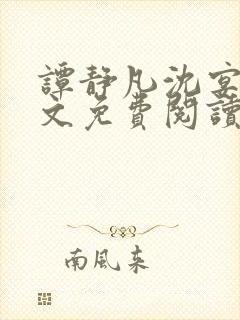 譚靜凡沈宴
文免費閱讀
南風來